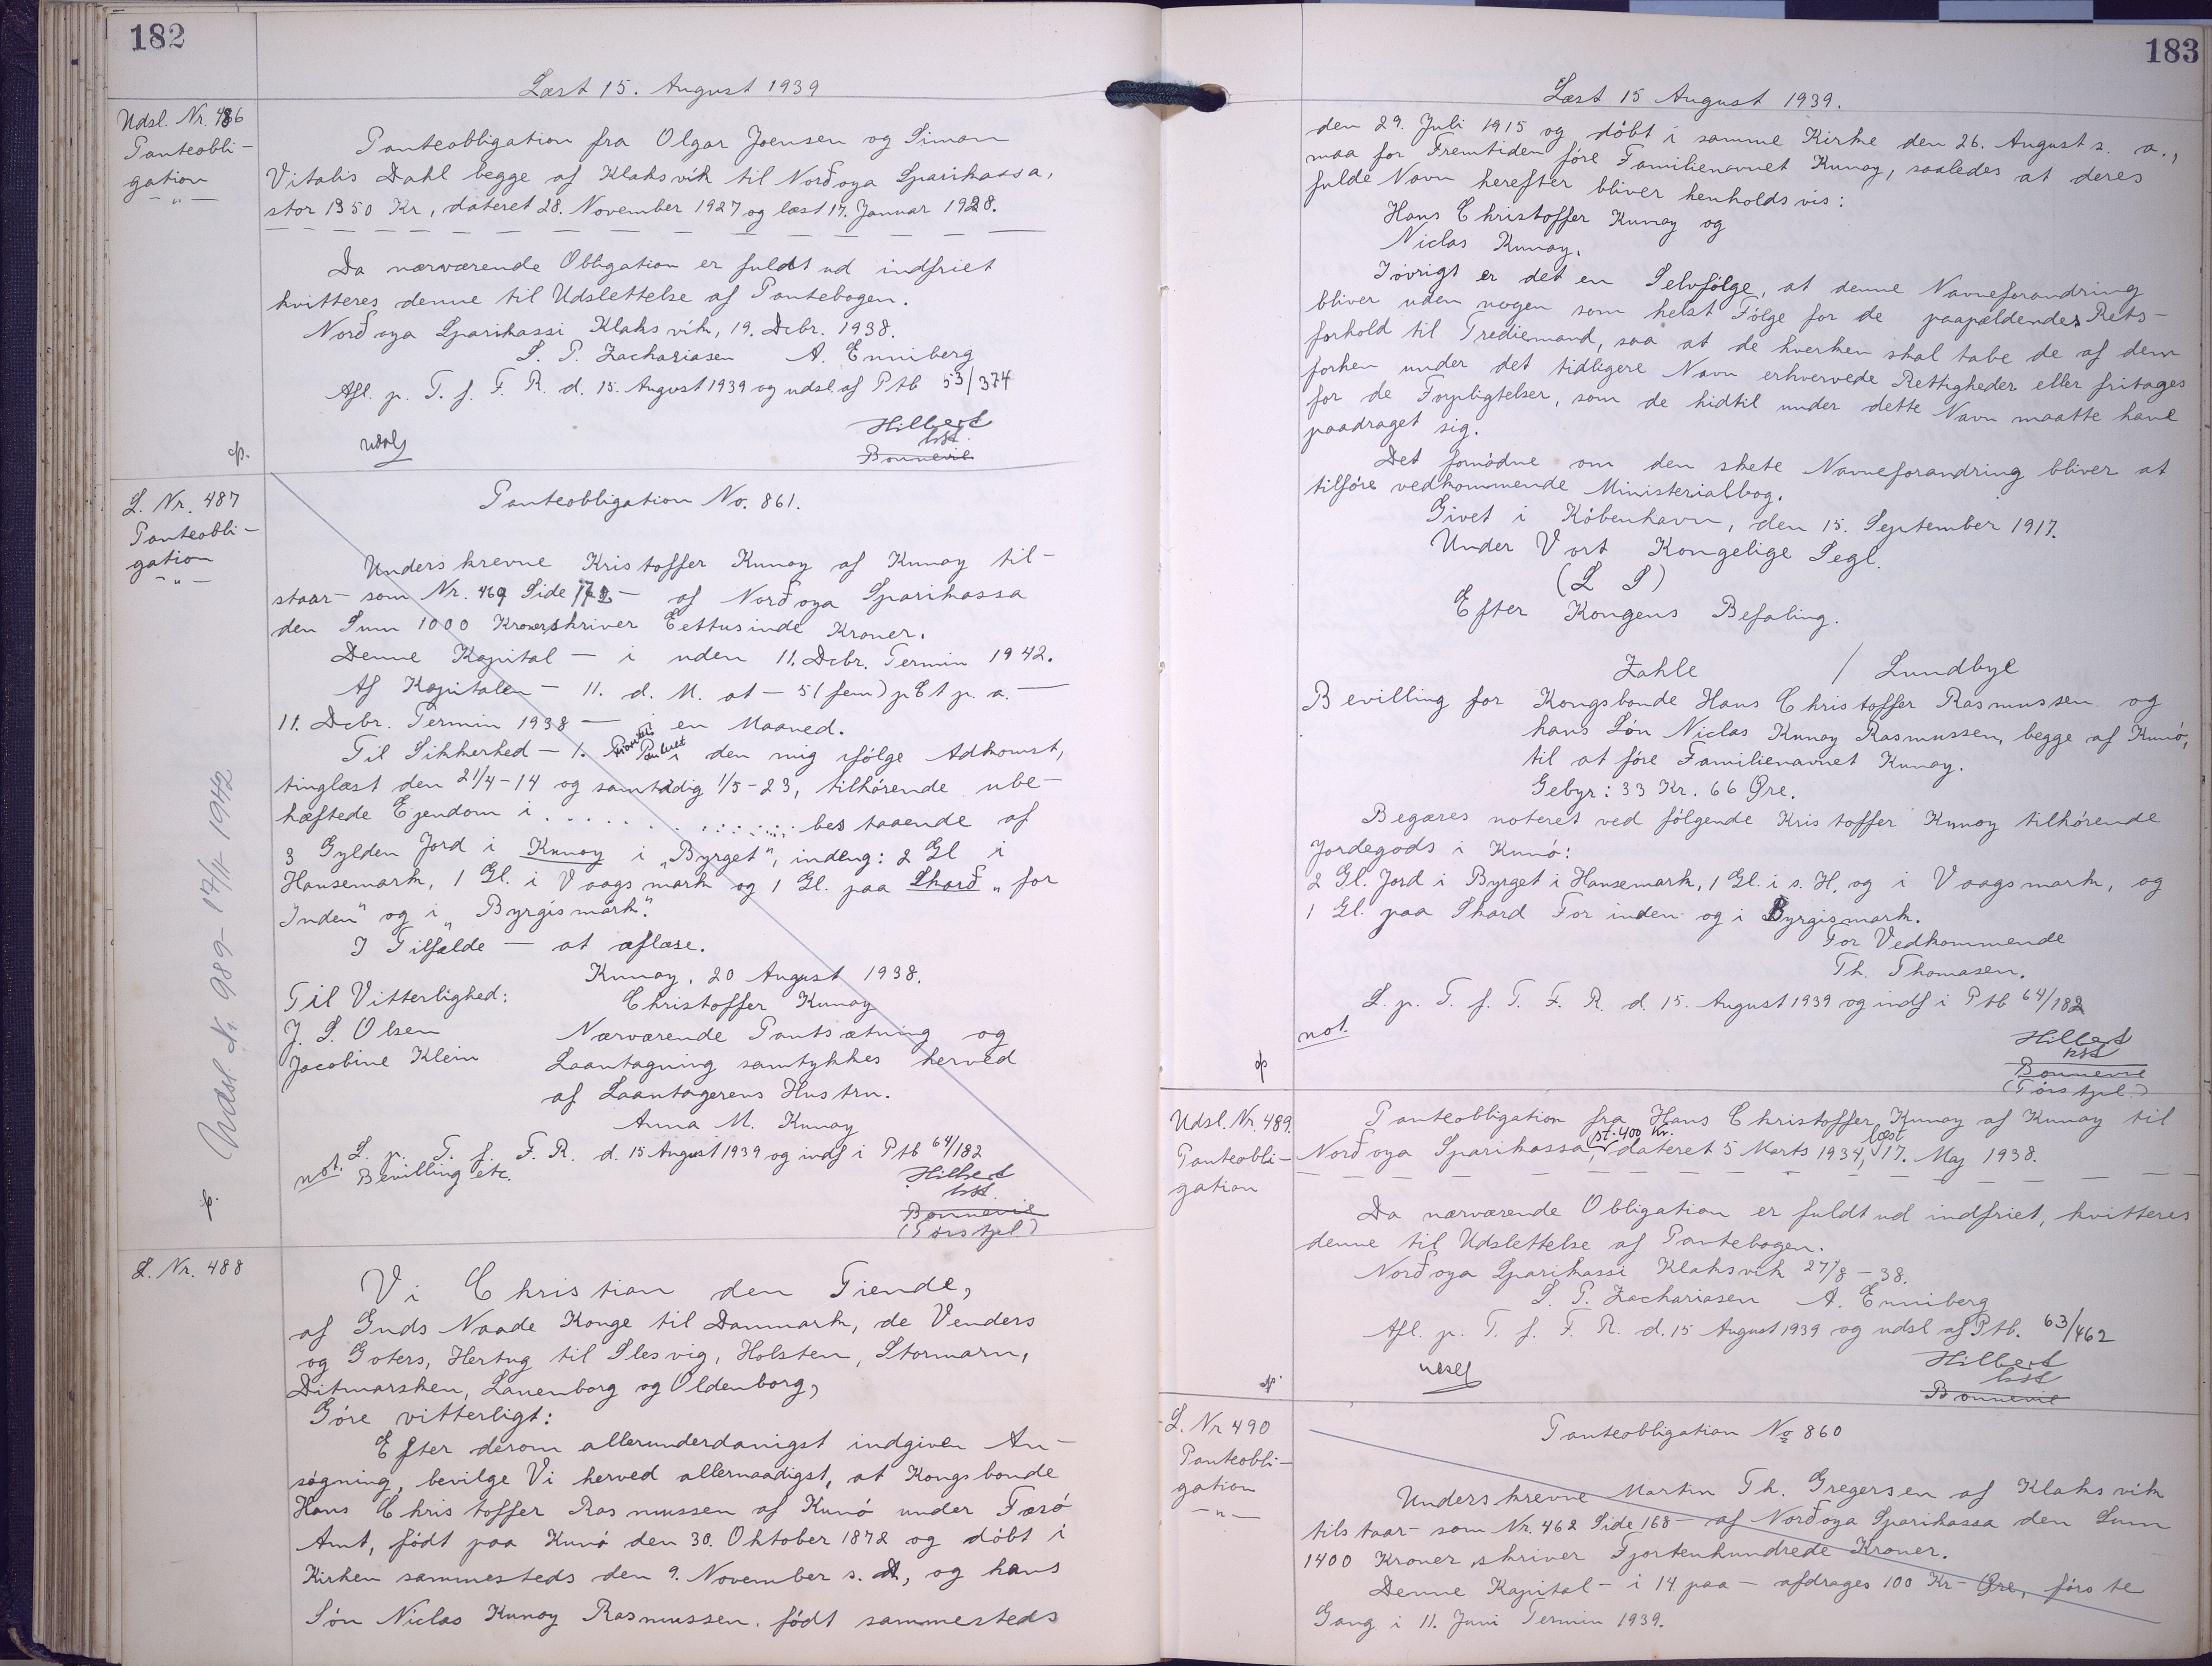 182
Læst 15. August 1939
Udsl. Nr. 486
Panteobli-
gation
- " -
Panteobligation fra Olgar Joensen og Simon
Vitalis Dahl begge af Klaksvík til Norðoya Sparikassa,
stor 1350 Kr, dateret 28. November 1927 og læst 17. Januar 1928.
Da nærværende Obligation er fuldt ud indfriet
kvitteres denne til Udslettelse af Pantebogen.
Norðoya Sparikassi Klaksvík, 19. Dcbr. 1938.
S. P. Zachariasen A. Enniberg
Afl. p. T. f. F. R. d. 15. August 1939 og udsl. af Ptb 53/374
udsl
Hilbert
kst.
Bonnevie
cp.
L. Nr. 487
Panteobli-
gation
- " -
Panteobligation No. 861.
Underskrevne Kristoffer Kunoy af Kunoy til-
staar - som Nr. 469 Side 172 - af Norðoya Sparikassa
den Sum 1000 Kroner, skriver Eettusinde Kroner.
Denne Kapital - i uden 11. Dcbr. Termin 1942.
Af Kapitalen - 11. d. M. at - 5 (fem) pCt p. a. -
11. Dcbr. Termin 1938 - i en Maaned.
Til Sikkerhed - 1. Prioritets Panteret i den mig ifølge Adkomst,
tinglæst den 21/4-14 og samtidig 1/5-23, tilhørende ube-
hæftede Ejendom i . . . . . . . . . . . . bestaaende af
3 Gylden Jord i Kunoy i "Byrget", indeng: 2 Gl i
Hansemark, 1 Gl. i Vaagsmark og 1 Gl. paa Skarð "for
Inden" og i "Byrgismark".
I Tilfælde - at aflæse.
Kunoy, 20 August 1938.
Til Vitterlighed: Christoffer Kunoy
J. S. Olsen Nærværende Pantsætning og
Jacobine Klein Laantagning samtykkes herved
af Laantagerens Hustru.
Anna M. Kunoy
L. p. T. f. F. R. d. 15 August 1939 og indf i Ptb 64/182
not. Bevilling etc.
Hilbert
kst.
Bonnevie
(Tórstjel)
Udsl. Nr. 989 - 17/11 1942
cp.
L. Nr. 488
Vi Christian den Tiende,
af Guds Naade Konge til Danmark, de Venders
og Goters, Hertug til Slesvig, Holsten, Stormarn,
Ditmarsken, Lauenborg og Oldenborg,
Góre vitterligt:
Efter derom allerunderdanigst indgiven An-
søgning, bevilge Vi herved allernaadigst, at Kongsbonde
Hans Christoffer Rasmussen af Kunó under Færó
Amt, fódt paa Kunó den 30. Oktober 1872 og dóbt i
Kirken sammesteds den 9. November s. A, og hans
Són Niclas Kunoy Rasmussen, fódt sammesteds
183
Læst 15 August 1939.
den 29. Juli 1915 og dóbt i samme Kirke den 26. August s. a.,
maa for Fremtiden fóre Familienavnet Kunoy, saaledes at deres
fulde Navn herefter bliver henholdsvis:
Hans Christoffer Kunoy og
Niclas Kunoy.
Ióvrigt er det en Selvfólge, at denne Navneforandring
bliver uden nogen som helst Fólge for de paagældendes Rets-
forhold til Trediemand, saa at de hverken skal tabe de af dem
forhen under det tidligere Navn erhvervede Rettigheder eller fritages
for de Forpligtelser, som de hidtil under dette Navn maatte have
paadraget sig.
Det fornódne om den skete Navneforandring bliver at
tilfóre vedkommende Ministerialbog.
Givet i Kóbenhavn, den 15. September 1917.
Under Vort Kongelige Segl.
(L S)
Efter Kongens Befaling.
Zahle / Lundbye
Bevilling for Kongsbonde Hans Christoffer Rasmussen og
hans Són Niclas Kunoy Rasmussen, begge af Kunó,
til at fóre Familienavnet Kunoy.
Gebyr: 33 Kr. 66 Øre.
Begæres noteret ved fólgende Kristoffer Kunoy tilhórende
Jordegods i Kunó:
2 Gl. Jord i Byrget i Hansemark, 1 Gl. i s. H. og i Vaagsmark, og
1 Gl. paa Skard For inden og i Byrgismark.
For Vedkommende
Th. Thomasen.
L. p. T. f. T. F. R. d. 15. August 1939 og indf i Ptb 64/182
not.
Hilbert
kst
Bonnevie
(Tórstjel)
cp
Udsl. Nr. 489.
Panteobli-
gation
Panteobligation fra Hans Christoffer Kunoy af Kunoy til
Norðoya Sparikassa, st. 400 Kr. dateret 5 Marts 1934, læst 17. Maj 1938.
Da nærværende Obligation er fuldt ud indfriet, kvitteres
denne til Udslettelse af Pantebogen.
Norðoya Sparikassi Klaksvík 27/8-38.
S. P. Zachariasen A. Enniberg
Afl. p. T. f. F. R. d. 15 August 1939 og udsl af Ptb. 63/462
udsl
Hilbert
kst
Bonnevie
cp.
L. Nr 490
Panteobli-
gation
- " -
Panteobligation No 860
Underskrevne Martin Th. Gregersen af Klaksvík
tilstaar - som Nr. 462 Side 168 - af Norðoya Sparikassa den Sum
1400 Kroner skriver Fjortenhundrede Kroner.
Denne Kapital - i 14 paa - afdrages 100 Kr - Øre, fórste
Gang i 11. Juni Termin 1939.